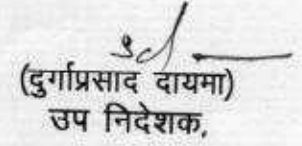 (दुर्गाप्रसाद दायमा)
उप निदेशक,